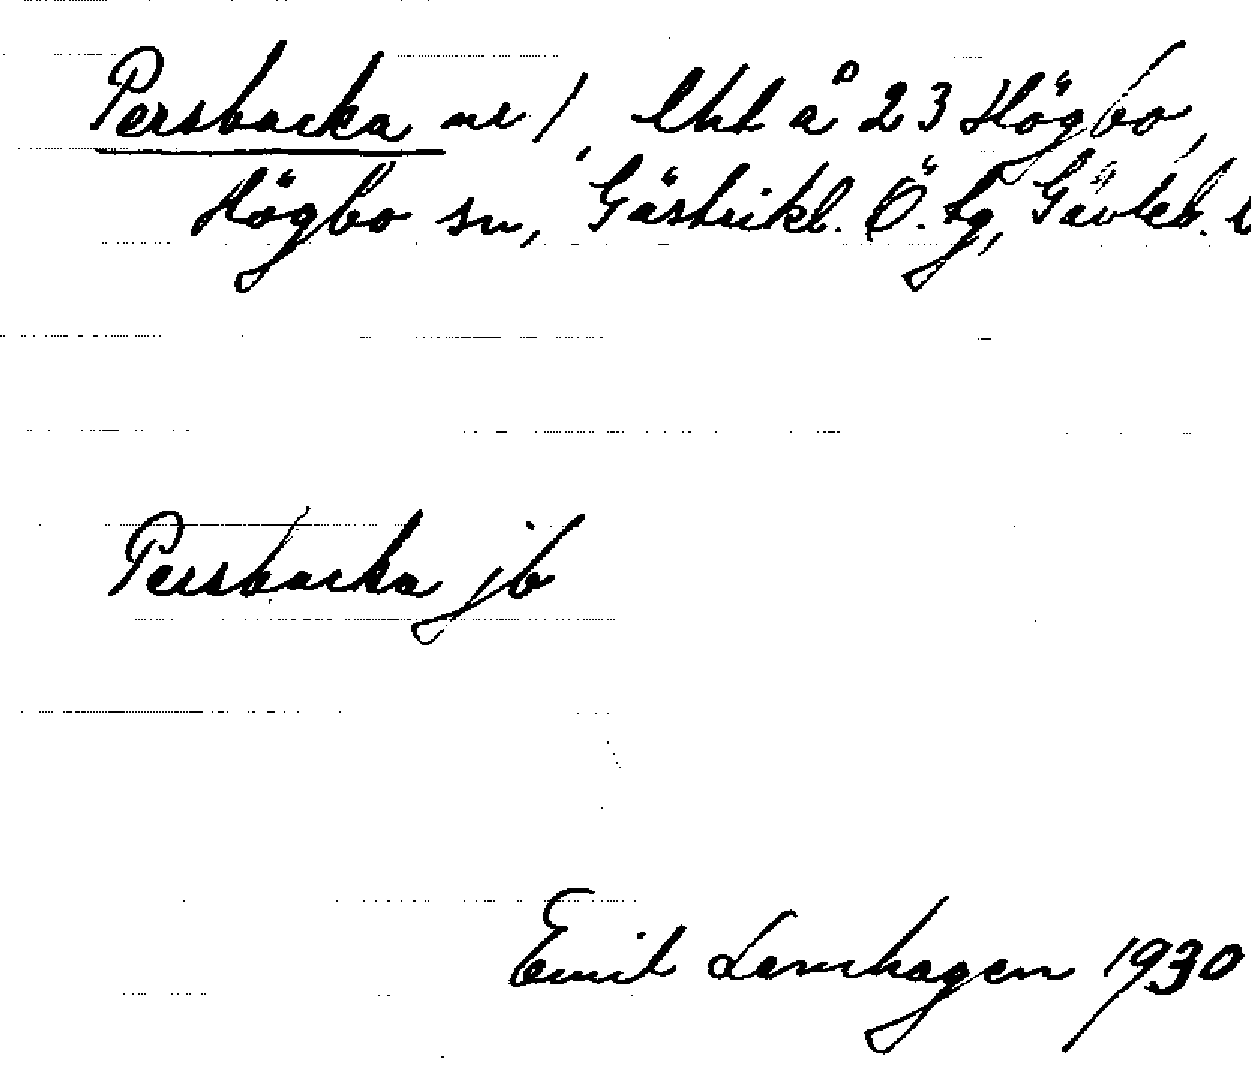 Persbacka nr 1, lht å 23 Högbo,
Högbo sn, Gästrikl. Ö. tg, Gävleb.
Persbacka jb
Emil 1930